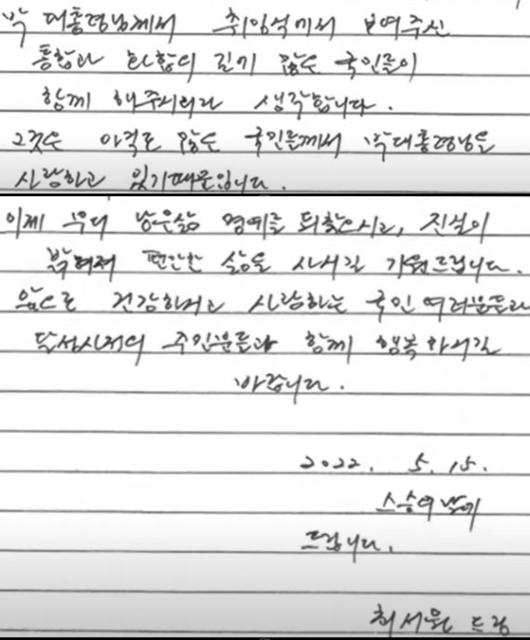 박 대통령님께서 취임식에서 보여주신
통합과 화합의 길기 많은 국민들이
함께 해주시리라 생각합니다.
그것은 아직도 많은 국민들께서 박대통령님을
사랑하고 있기때문입니다.
이제 부디 남은삶 명예를 되찾으시고, 진실이
밝혀져 편안한 삶을 사시길 기원드립니다.
앞으로 건강하시고 사랑하는 국민 여러분들과
달성사저의 주민분들과 함께 행복하시길
바랍니다.
2022. 5. 15.
스승의 날에
드립니다.
최서원 드림